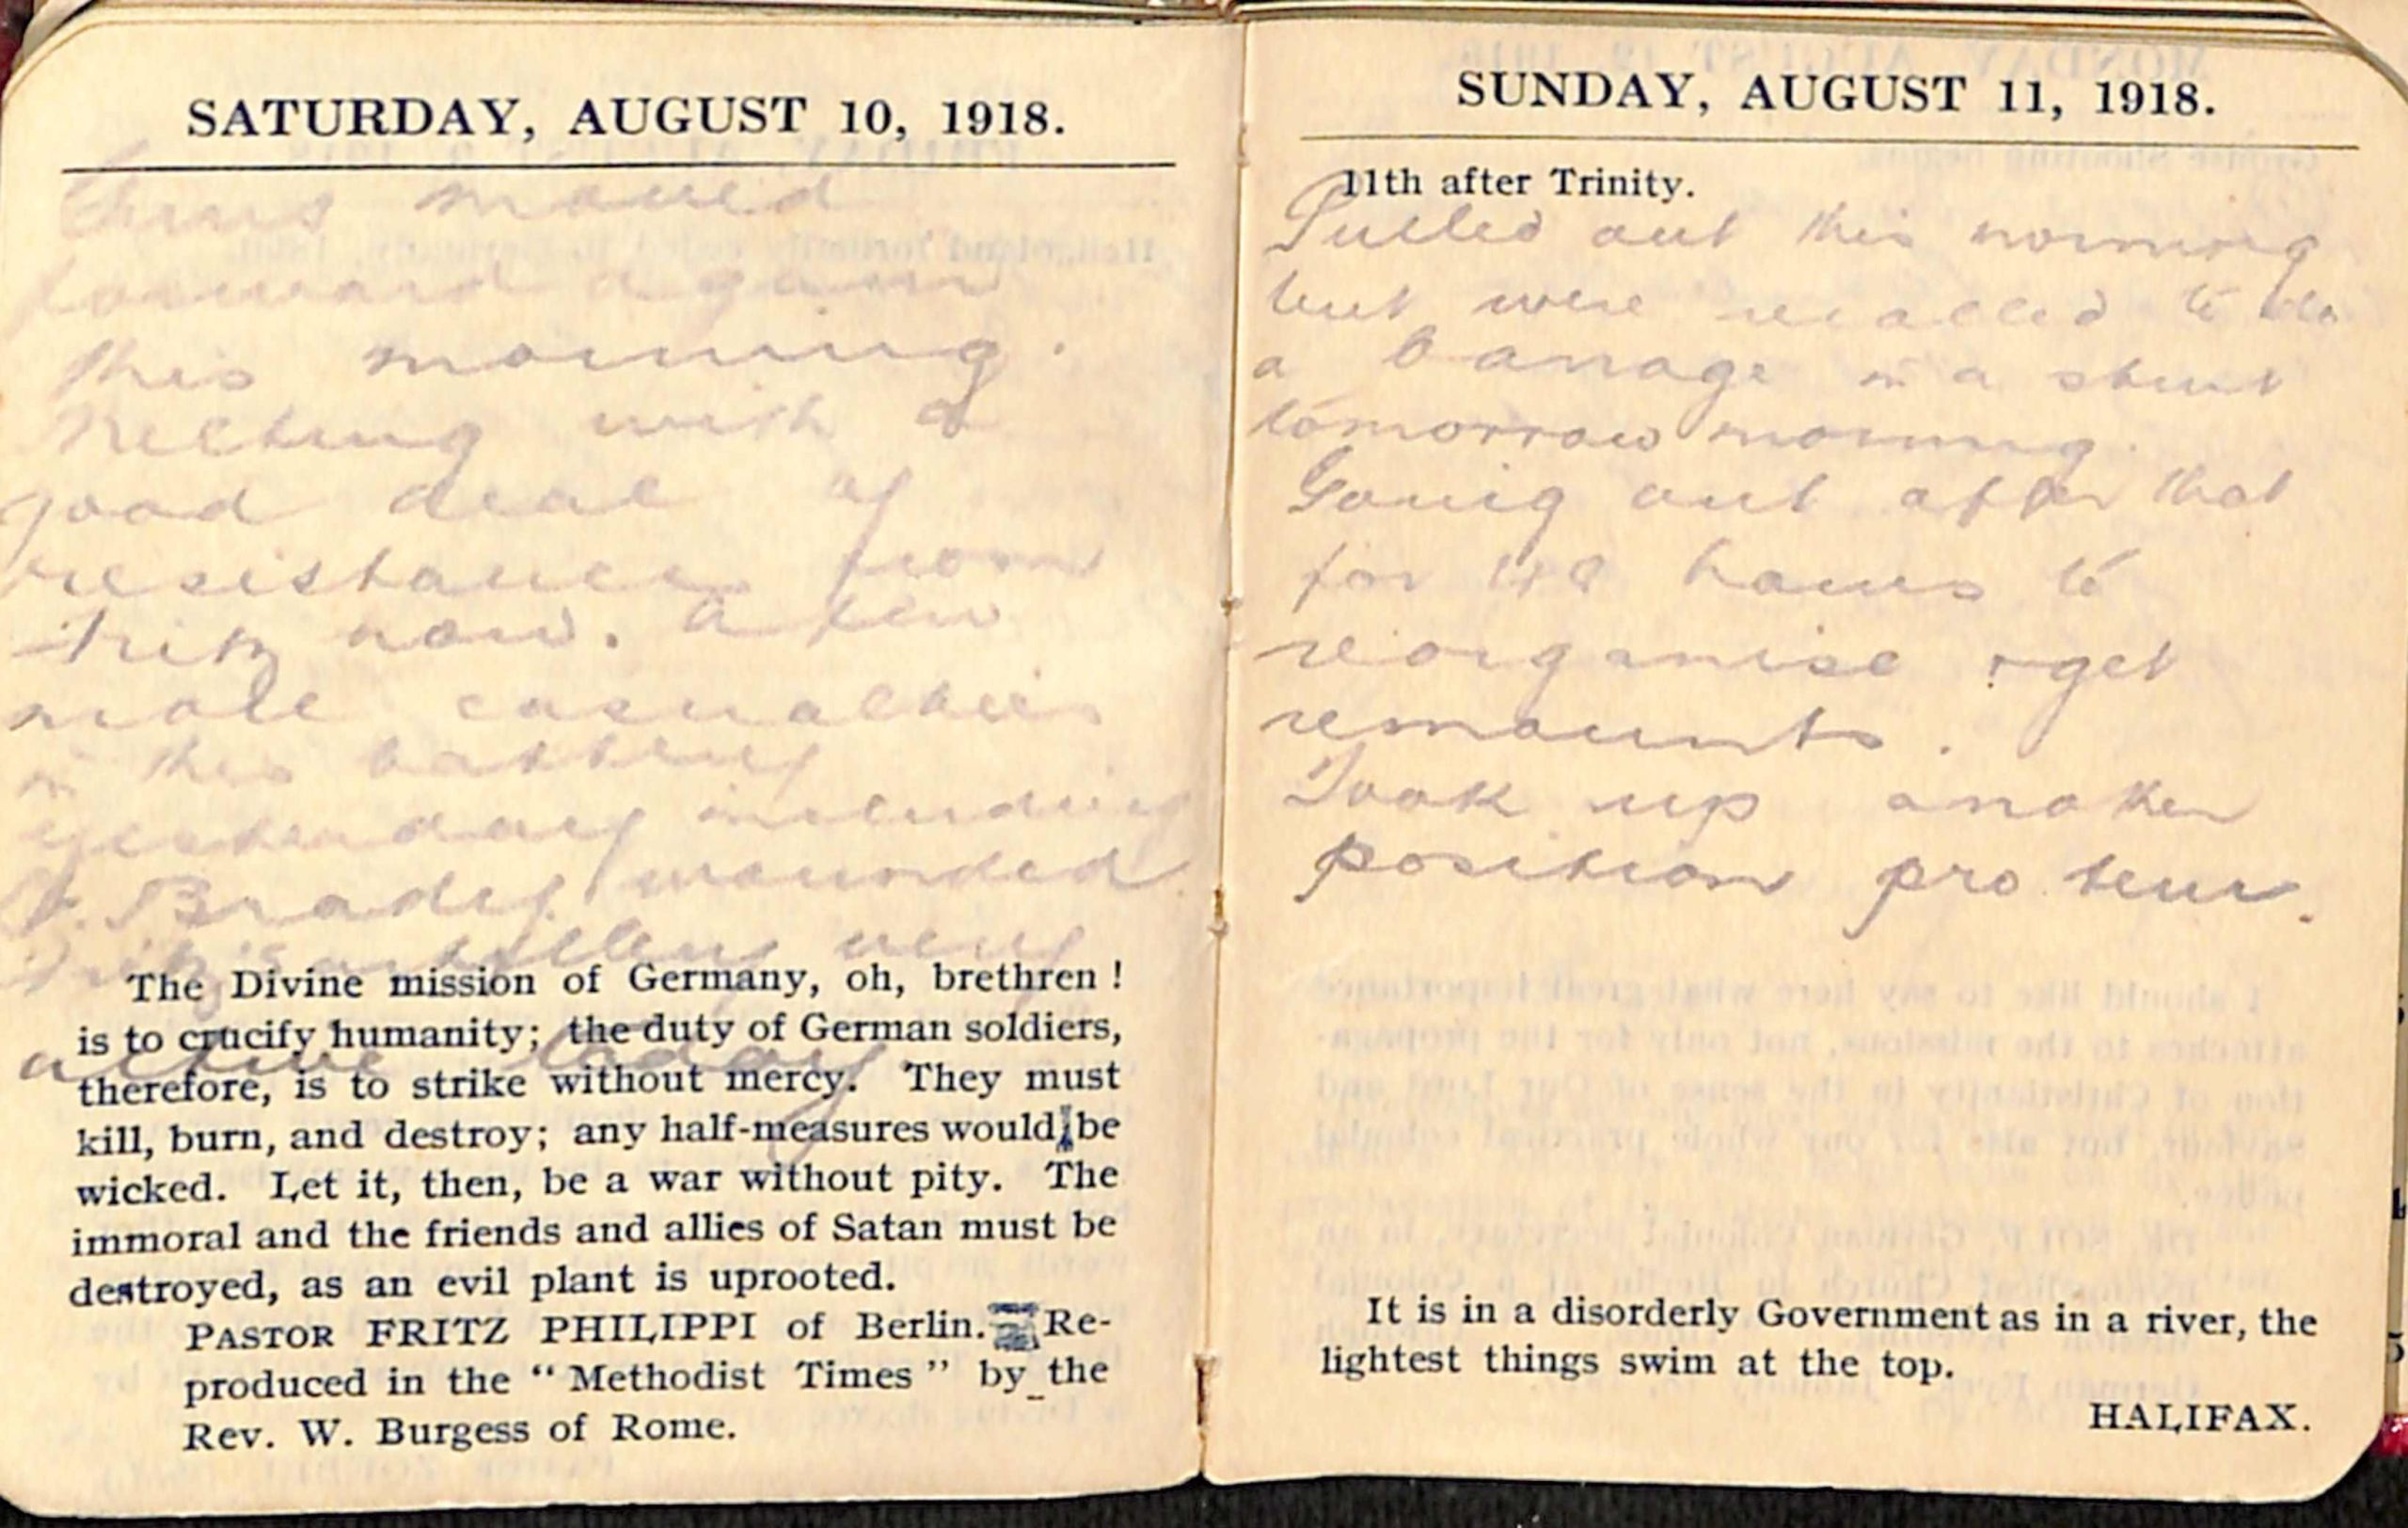 SATURDAY, AUGUST 10, 1918.
Guns moved
forward again
this morning.
Meeting with a
good deal of
resistance from
Fritz now. A few
more casualties
in this battery
yesterday including
J. Brady wounded.
Fritz's artillery very
active today.
The Divine mission of Germany, oh, brethren !
is to crucify humanity; the duty of German soldiers,
therefore, is to strike without mercy. They must
kill, burn, and destroy; any half-measures would be
wicked. Let it, then, be a war without pity. The
immoral and the friends and allies of Satan must be
destroyed, as an evil plant is uprooted.
PASTOR FRITZ PHILIPPI of Berlin. Re-
produced in the “ Methodist Times ” by the
Rev. W. Burgess of Rome.
SUNDAY, AUGUST 11, 1918.
11th after Trinity.
Pulled out this morning
but were recalled to do
a barrage in a stunt
tomorrow morning.
Going out after that
for 48 hours to
reorganise & get
remounts.
Took up another
position pro tem.
It is in a disorderly Government as in a river, the
lightest things swim at the top.
HALIFAX.